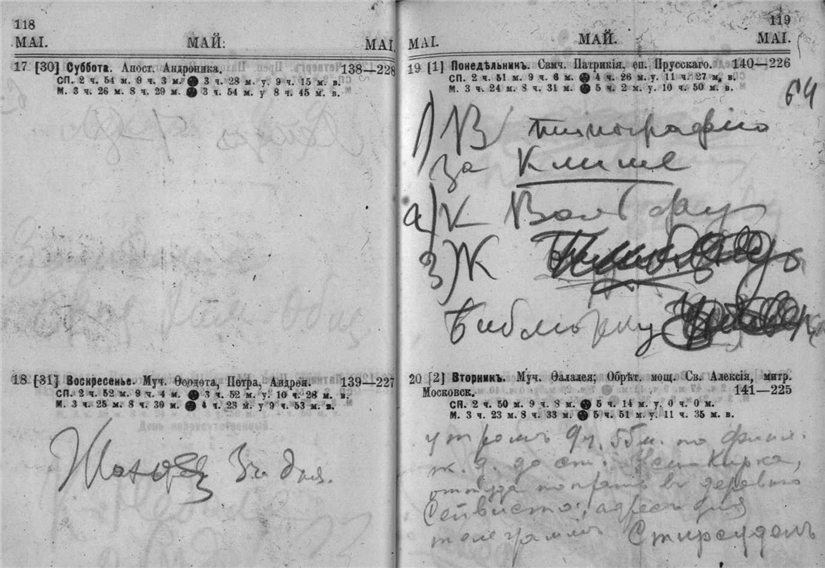 118
MAI. МАЙ: MAI.
17 [30] Суббота. Апост. Андроника, 138—228
СП. 2 ч. 54 м. 9 ч. 3 м. 3 ч. 28 м. у. 9 ч. 15 м. в.
М. 3 ч. 26 м. 8 ч. 29 м. 3 ч. 54 м. у 8 ч. 45 м. в.
18 [31] Воскресенье. Муч. Ѳеодота, Петра, Андрея. 139—227
СП. 2 ч. 52 м. 9 ч. 4 м. 3 ч. 52 м. у. 10 ч. 28 м. в.
М. 3 ч. 25 м. 8 ч. 30 м. 4 ч. 23 м. у 9 ч. 53 м. в.
3 ч. дня.
119
MAI. МАЙ. MAI.
19 [1] Понедѣльникъ. Свмч. Патрикія, еп. Прусскаго. 140—226
СП. 2 ч. 51 м. 9 ч. 6 м. 4 ч. 26 м. у. 11 ч. 27 м. в.
М. 3 ч. 24 м. 8 ч. 31 м. 5 ч. 2 м. у. 10 ч. 50 м. в.
64
1) Въ типографію
за клише
2) К Вольфу
3) К
библіотеку
20 [2] Вторникъ. Муч. Ѳалалея; Обрѣт. мощ. Св. Алексія, митр.
Московск. 141—225
СП. 2 ч. 50 м. 9 ч. 8 м. 5 ч. 14 м. у. 0 ч. 0 м.
М. 3 ч. 23 м. 8 ч. 33 м. 5 ч. 51 м. у. 11 ч. 35 м. в.
утромъ 9 ч. 55 м. по финл.
ж. д. до ст. Усикирка,
оттуда в деревню
Сейвисто; адрес для
телеграммъ